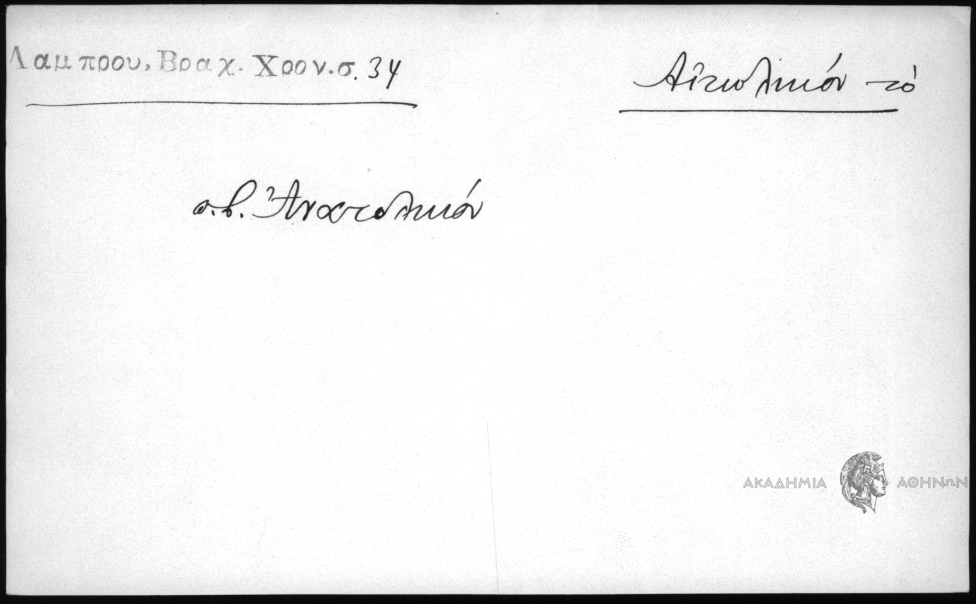 Λαμπρου, Βραχ. Χρον. σ. 34
Αἰτωλικόν τὸ
σ.β. Ἀνατολικόν
ΑΚΑΔΗΜΙΑ ΑΘΗΝΩΝ